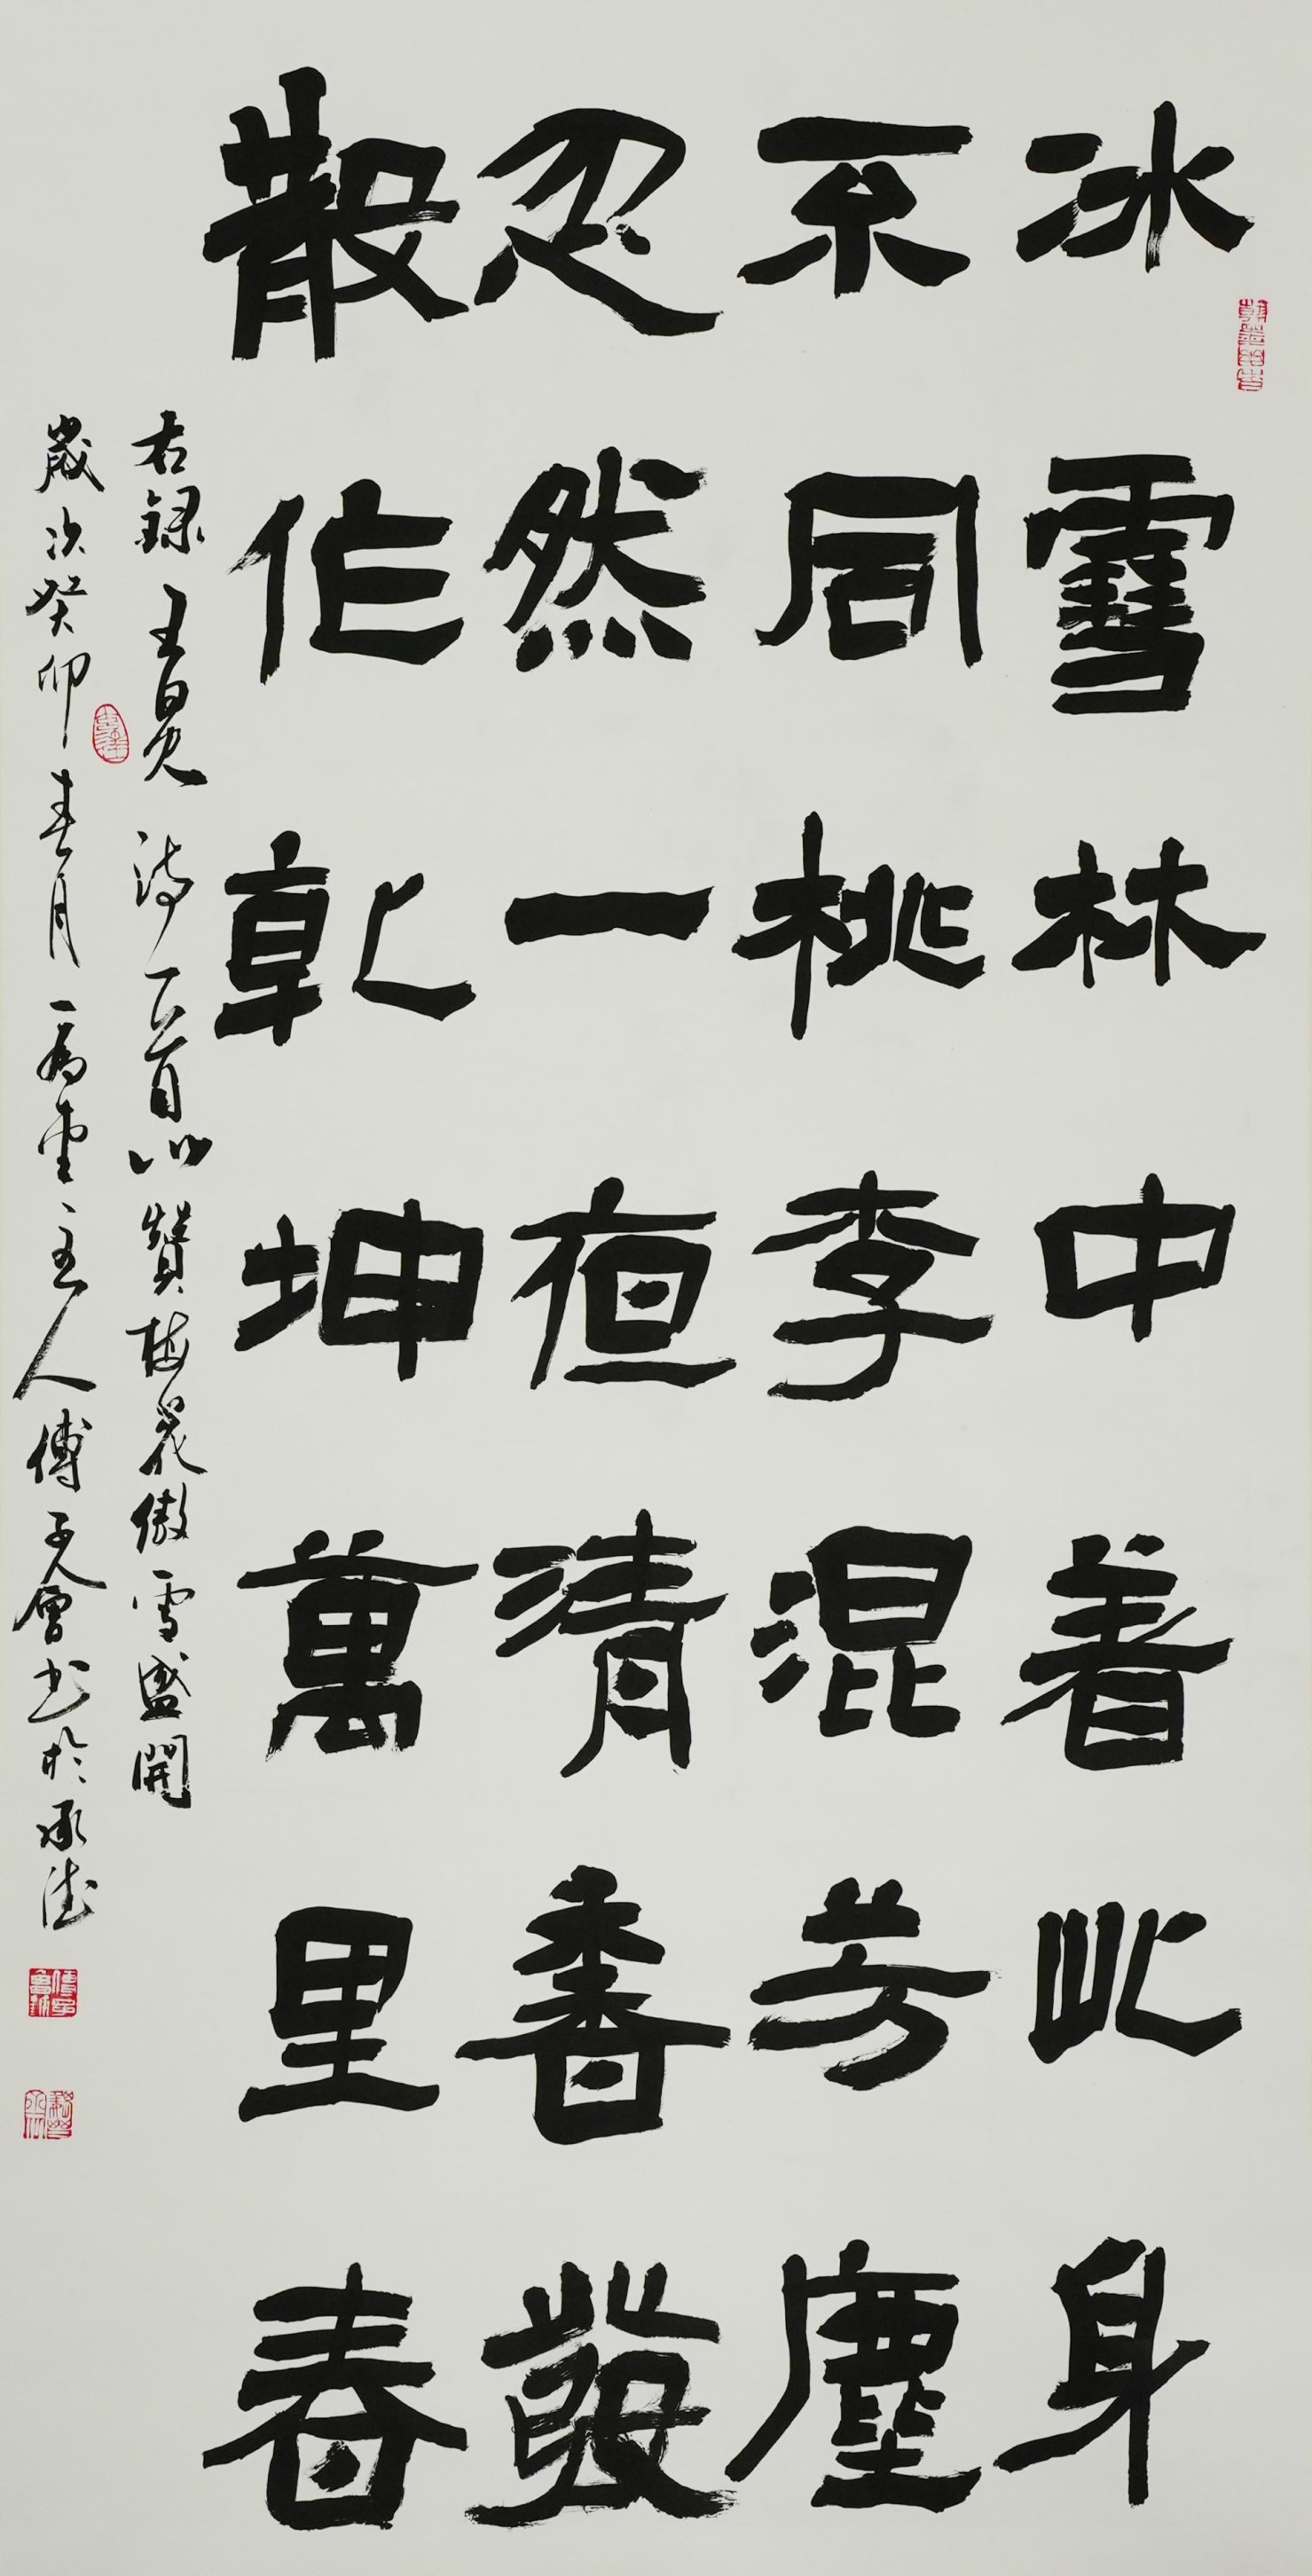 冰雪林中着此身
不同桃李混芳塵
忽然一夜清香發
散作乾坤萬里春
右録王冕詩一首以贊梅花傲雪盛開
歲次癸卯春月一為堂主人傅子會書於承德